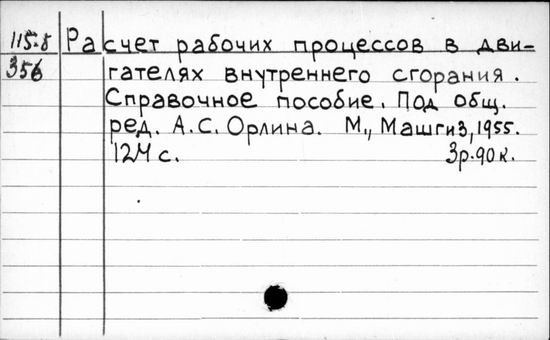 115-8 Расчет рабочих процессов в дви-
356 гателях внутреннего сгорания.
Справочное пособие. Под общ.
ред. А.С. Орлина. М., Машгиз, 1955.
124 с. 3р.90к.